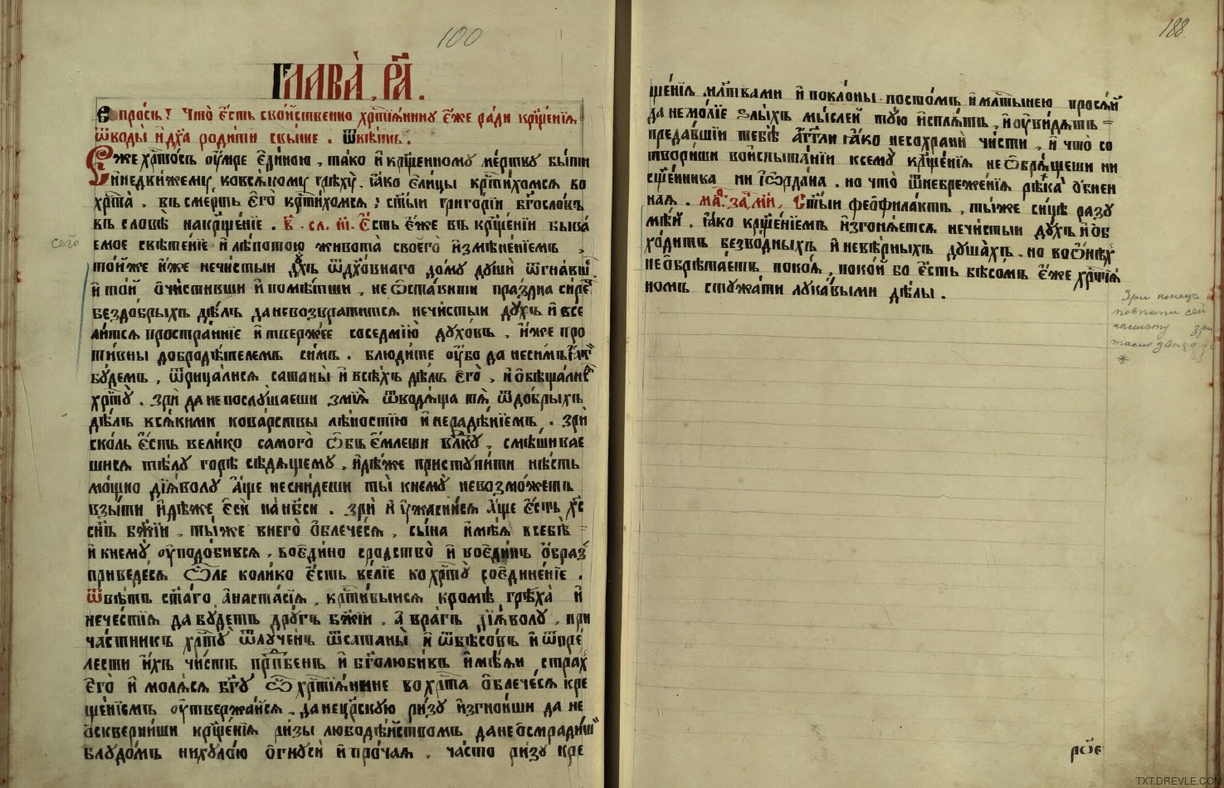 100
ГЛАВА, РА҃.
Вопросъ? Что̀ є҆́сть сво́йственно хрⷭ҇тїѧ́нину є҆́же ра́ди крⷳ҇щенїѧ,
ѿводы̀ и҆ дх҃а роди́тисѧ свы́ше . Ѿвѣ́тъ.
Є҆́же хрⷭ҇то́съ оу҆́мре є҆ди́ною , та́ко и҆ крⷳ҇щенному ме́ртву бы́ти
и҆ недви́жему, ковсѧ́кому грѣхꙋ̀. ꙗ҆́ко є҆ли́цы крⷭ҇ти́хомсѧ во
хрⷭ҇та̀ . въ сме́рть є҆гѡ̀ крⷭ҇ти́хомсѧ ; ст҃ы́и григо́рїи бг҃осло́въ
въ сло́вѣ накрⷳ҇щенїе . в҃ . сл. м҃. Є҆́сть є҆́же въ крⷳ҇щенїи быва́
сего
емое свѣте́нїе и҆ лѣ́потою живота̀ своегѡ̀ и҆змѣне́нїемъ ,
то́йже и҆́же нечи́стыи дх҃ъ ѿдх҃о́внаго до́мꙋ дꙋшѝ ѿгна́вшї
и҆ то́й ѡ҆чи́стивши и҆ помѣ́тши , не ѡ҆ста́виши пра́здна си́рѣⷱ҇
бездо́брыхъ дѣ́лъ да невозврати́тсѧ нечи́стыи дꙋ́хъ и҆ все
ли́тсѧ простра́ннїе и҆ тверже́е соседмїю̀ дꙋхо́въ , и҆̀же про
ти́вны доброде́телемъ си́мъ . блюди́те оу҆́бо да неси́мъ
бꙋ́демъ , ѿрица́лисѧ сатаны̀ и҆ всѣ́хъ дѣ́лъ є҆гѡ̀ , и҆ ѡ҆бѣща́лисѧ
хрⷭ҇тꙋ̀ . зрѝ да непослꙋ́шаеши змїѧ̀ ѿводѧ́ща тѧ̀ ѿдо́брыхъ
дѣ́лъ всѧ́кими кова́рствы лѣ́ностїю и҆ нерадѣ́нїемъ . зрѝ
ско́ль є҆́сть вели́ко самогѡ̀ въ є҆́млеши влⷣкꙋ , смѣшива́е
шисѧ тѣ́лꙋ горѣ̀ сѣдѧ́щемꙋ . и҆дѣ́же пристꙋпи́ти нѣ́сть
мо́щно дїѧ́волꙋ а҆́ще несни́деши ты̀ кнемꙋ̀ невозмо́жетъ
взы́ти и҆дѣ́же є҆сѝ на нб҃сѝ . зрѝ и҆ оу҆жаса́йсѧ а҆́ще є҆́сть хс҃
сн҃ъ бж҃їи . ты́же внего̀ ѡ҆блече́сѧ , сы́на и҆мѣ́ѧ всебѣ̀
и҆ кнемꙋ̀ оу҆подо́бивсѧ . воеди́но сродство̀ и҆ воеди́нъ ѡ҆́браз
приведе́сѧ Ѽле коли́ко є҆́сть ве́лїе ко хрⷭ҇тꙋ̀ соедине́нїе .
Ѿвѣ́тъ ст҃а́го а҆наста́сїѧ , крⷭ҇ти́выисѧ кромѣ̀ грѣха̀ и҆
нече́стїѧ да бꙋ́детъ дрꙋ́гъ бж҃їи . а҆ вра́гъ дїѧ́волꙋ , при
ча́стникъ хрⷭ҇тꙋ̀ ѿлꙋче́нъ ѿсатаны̀ и҆ ѿбѣсо́въ и҆ ѿпре́
лести и҆́хъ чи́стъ прпⷣбенъ и҆ бг҃олюби́въ и҆мѣ́ѧи , страх
є҆гѡ̀ и҆ молѧ́сѧ бг҃ꙋ Ѽ хрⷭ҇тїѧ́нине во хрⷭ҇та̀ ѡ҆блече́сѧ кре
ще́нїемъ оу҆твержа́йсѧ . да не цр҃скꙋю ри́зꙋ и҆згнои́ши да не
ѡ҆скверни́ши крⷳ҇щенїѧ ри́зы любодѣ́йствомъ да не осмради́ши
блꙋдо́мъ ни хꙋло́ю ѻ҆гнꙋси и҆ про́чаѧ . ча́сто ри́зꙋ кре
188
ще́нїѧ мл҃твами и҆ покло́ны посто́мъ и҆ млⷭ҇тынею просѧ́й
да не мо́лїе ѕлы́хъ мы́слей тꙋ́ю и҆сплѧ́тъ , и҆ оу҆ви́дѧтъ =
преда́вшїи тебѣ̀ а҆́гг҃ли ꙗ҆́ко несохранѝ чи́сти , и҆ что̀ со
твори́ши воиспыта́нїи ксемꙋ̀ крⷳ҇щенїѧ не ѡ҆брѧ́щеши ни
сщ҃е́нника ни і҆ѡрда́на . но что̀ ѿнебреже́нїѧ рѣка̀ ѻ҆́гнен
наѧ . ма. за. ми, Ст҃ы́и феѻфила́ктъ , ты́иже си́це разꙋ
мѣ́й , ꙗ҆́ко крⷳ҇щенїемъ и҆згонѧ́етсѧ нечи́стыи дꙋ́хъ и҆ ѡ҆б
хо́дитъ безво́дныхъ и҆ невѣ́рныхъ дꙋша́хъ . но во ѻ҆нѣ́хъ
не ѡ҆брѣта́етъ поко́ѧ , поко́й бо є҆́сть бѣсо́мъ є҆́же хрⷭ҇тїѧ́
номъ стꙋжа́ти лꙋка́выми дѣ́лы .
Зри
сей
зри
*
рое
TXT.DREVLE.COM